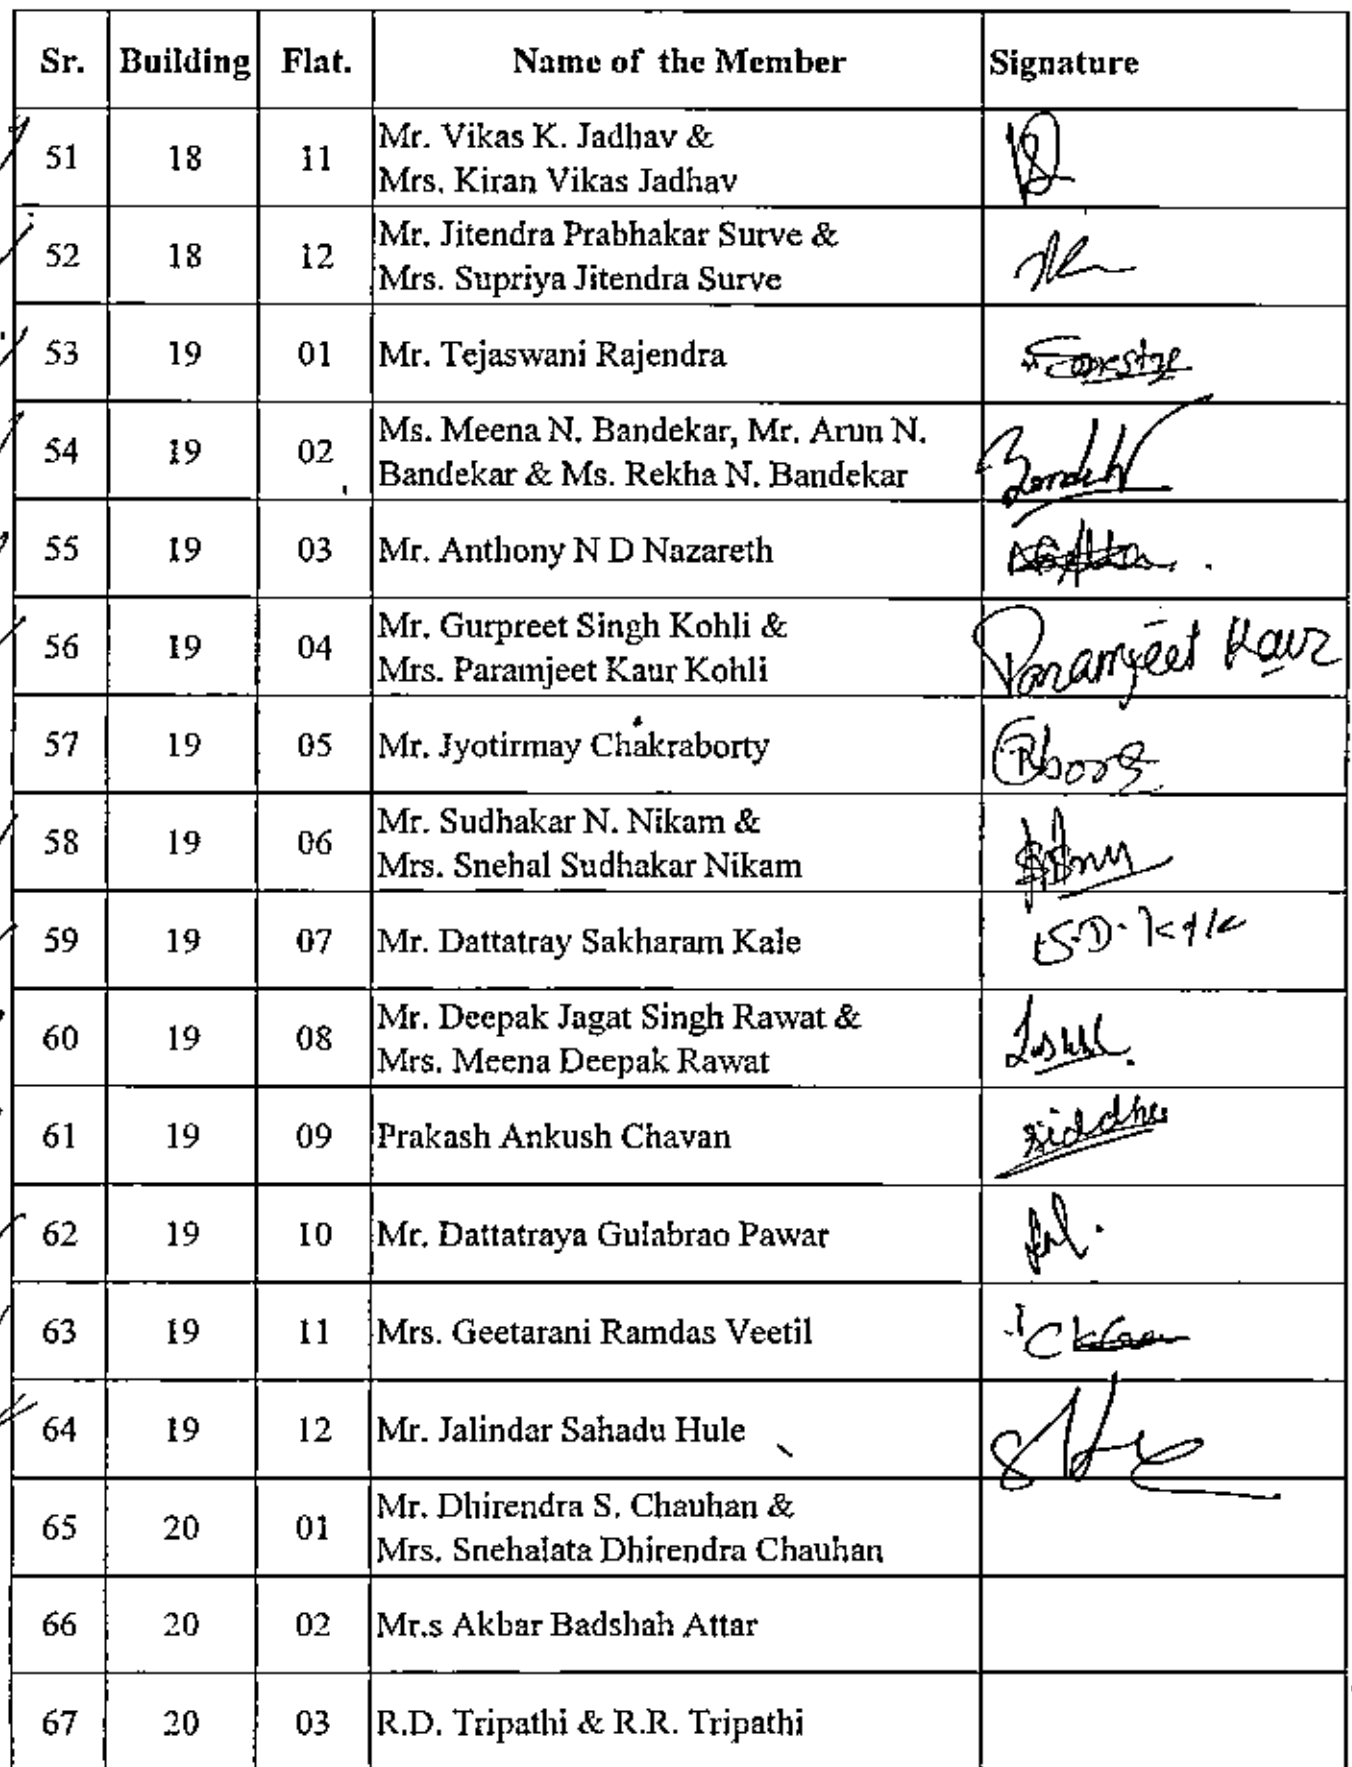 Sr. Building Flat. Name of the Member Signature
51 18 11 Mr. Vikas K. Jadhav &
Mrs. Kiran Vikas Jadhav
52 18 12 Mr. Jitendra Prabhakar Surve &
Mrs. Supriya Jitendra Surve
53 19 01 Mr. Tejaswani Rajendra
54 19 02 Ms. Meena N. Bandekar, Mr. Arun N.
Bandekar & Ms. Rekha N. Bandekar
55 19 03 Mr. Anthony N D Nazareth
56 19 04 Mr. Gurpreet Singh Kohli &
Mrs. Paramjeet Kaur Kohli Paramjeet Kaur
57 19 05 Mr. Jyotirmay Chakraborty
58 19 06 Mr. Sudhakar N. Nikam &
Mrs. Snehal Sudhakar Nikam
59 19 07 Mr. Dattatray Sakharam Kale S.D. Kale
60 19 08 Mr. Deepak Jagat Singh Rawat &
Mrs. Meena Deepak Rawat
61 19 09 Prakash Ankush Chavan siddhu
62 19 10 Mr. Dattatraya Gulabrao Pawar
63 19 11 Mrs. Geetarani Ramdas Veetil
64 19 12 Mr. Jalindar Sahadu Hule
65 20 01 Mr. Dhirendra S. Chauhan &
Mrs. Snehalata Dhirendra Chauhan
66 20 02 Mr.s Akbar Badshah Attar
67 20 03 R.D. Tripathi & R.R. Tripathi